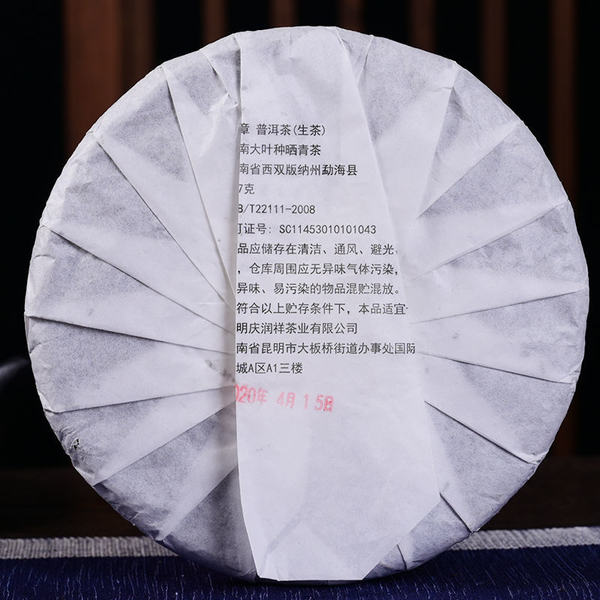 章 普洱茶(生茶)
南大叶种晒青茶
南省西双版纳州勐海县
7克
B/T22111-2008
可证号: SC11453010101043
品应储存在清洁、通风、避光、
，仓库周围应无异味气体污染,
异味、易污染的物品混贮混放。
符合以上贮存条件下，本品适宜
明庆润祥茶业有限公司
南省昆明市大板桥街道办事处国际
城A区A1三楼
020年 4月15日